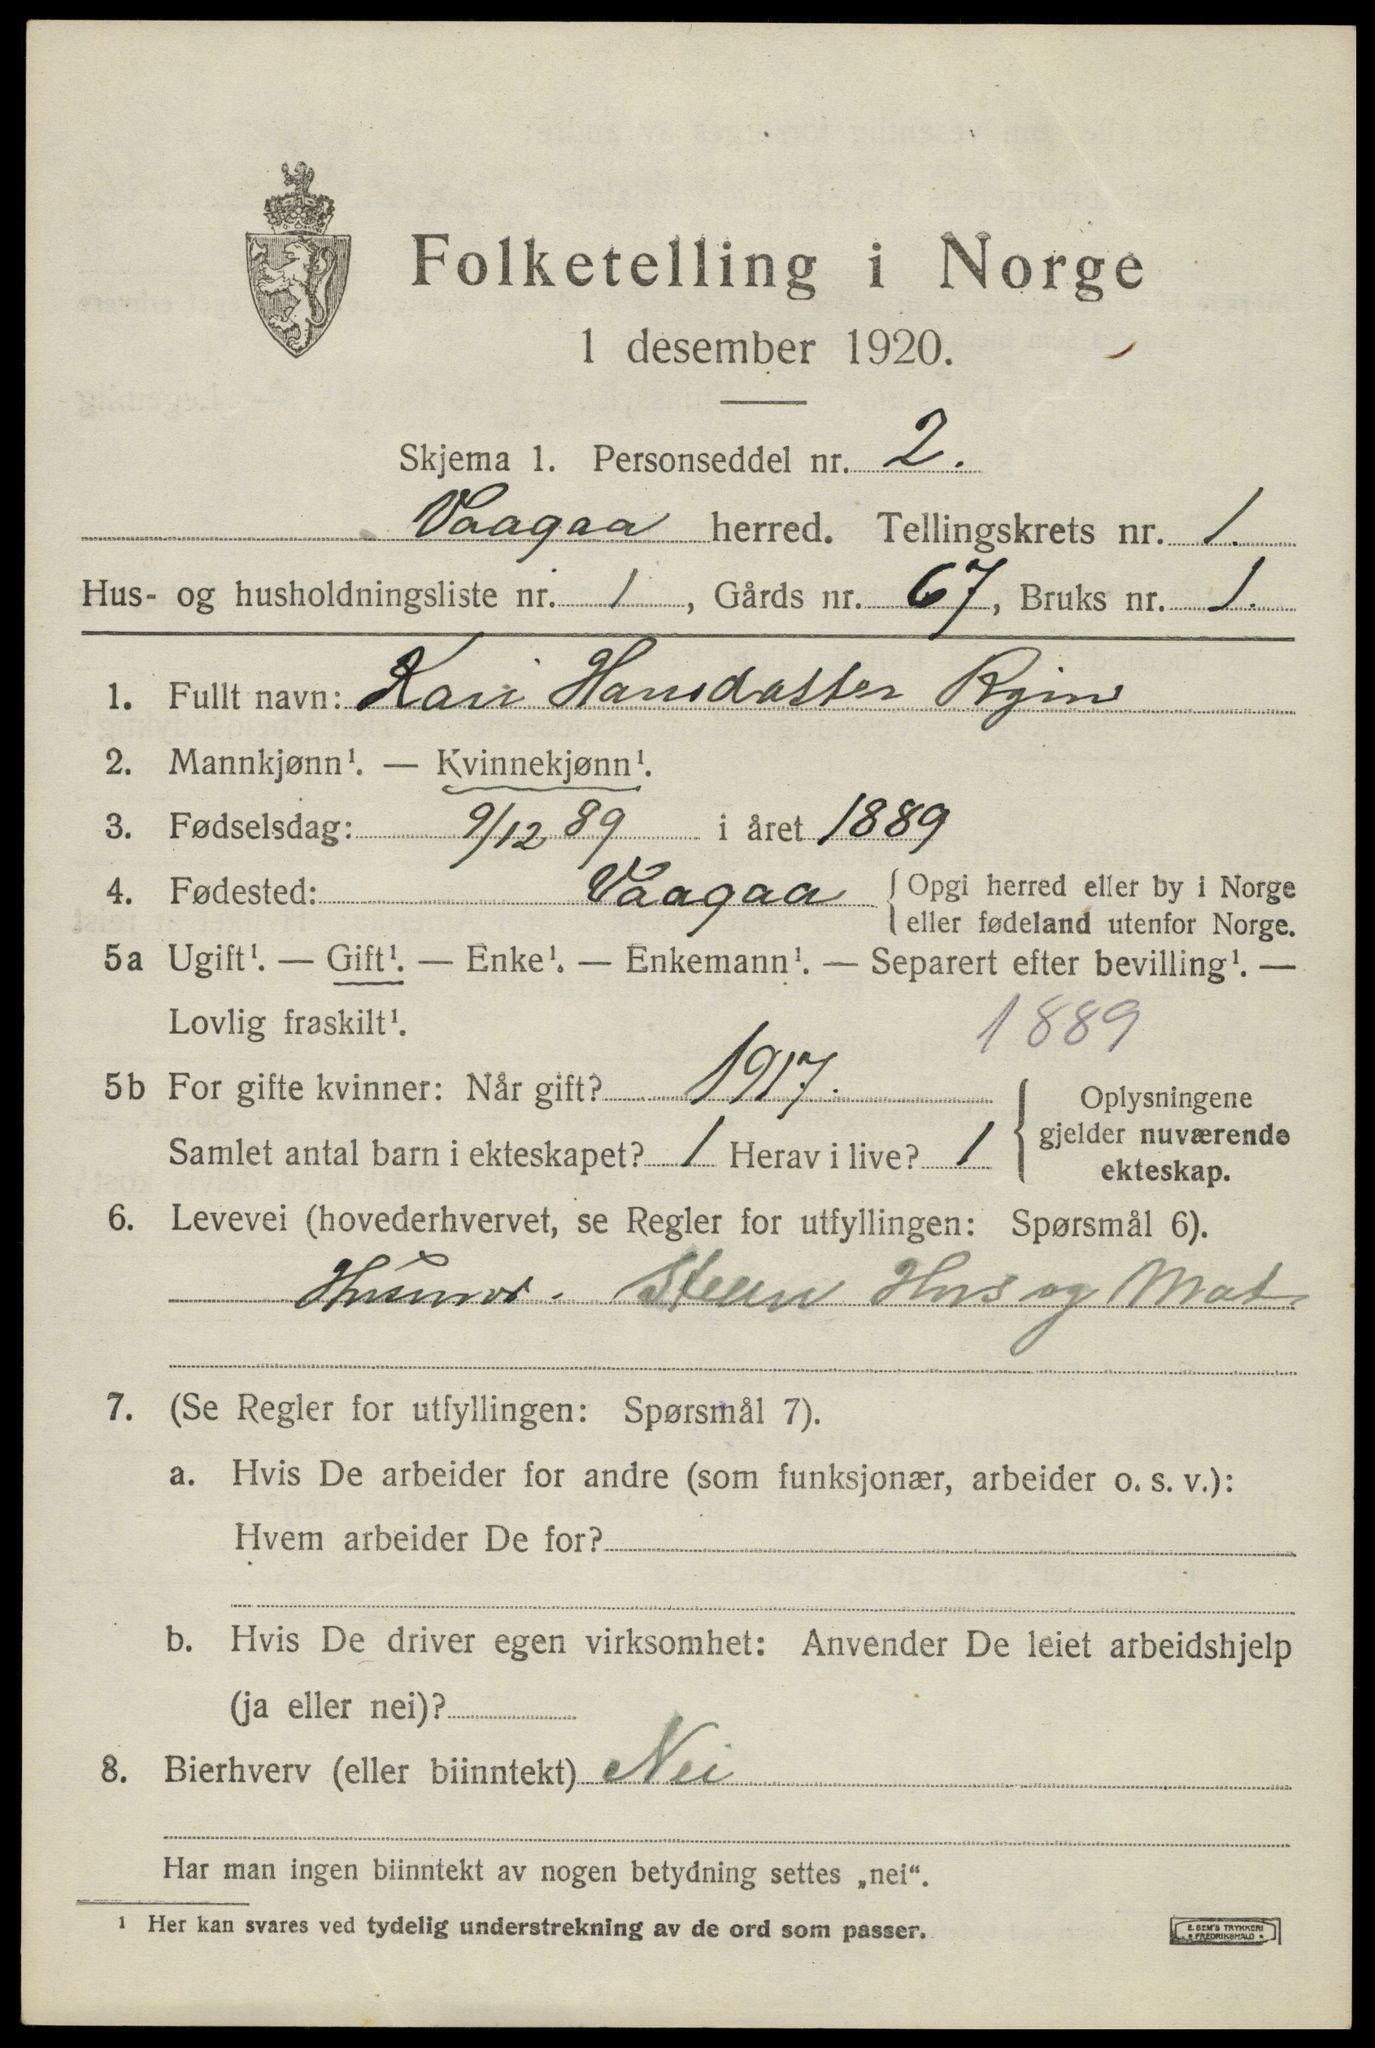 Folketelling i Norge
1 desember 1920.
Skjema 1. Personseddel nr. 2.
Vaagaa herred. Tellingskrets nr. 1.
Hus- og husholdningsliste nr. 1, Gårds nr. 67, Bruks nr. 1.
1. Fullt navn: Kari Hansdatter
2. Mannkjønn¹. — Kvinnekjønn¹.
3. Fødselsdag: 9/12 89 i året 1889
4. Fødested: Vaagaa { Opgi herred eller by i Norge
eller fødeland utenfor Norge.
5a Ugift¹. — Gift¹. — Enke¹. — Enkemann¹. — Separert efter bevilling¹. —
Lovlig fraskilt¹. 1889
5b For gifte kvinner: Når gift? 1917.
Samlet antal barn i ekteskapet? 1 Herav i live? 1
Oplysningene
gjelder nuværende
ekteskap.
6. Levevei (hovederhvervet, se Regler for utfyllingen: Spørsmål 6).
Husmor. Steller Hus og Mat
7. (Se Regler for utfyllingen: Spørsmål 7).
a. Hvis De arbeider for andre (som funksjonær, arbeider o. s. v.):
Hvem arbeider De for?
b. Hvis De driver egen virksomhet: Anvender De leiet arbeidshjelp
(ja eller nei)?
8. Bierhverv (eller biinntekt) Nei
Har man ingen biinntekt av nogen betydning settes „nei“.
¹ Her kan svares ved tydelig understrekning av de ord som passer.
E. SEM'S TRYKKERI
FREDRIKSHALD